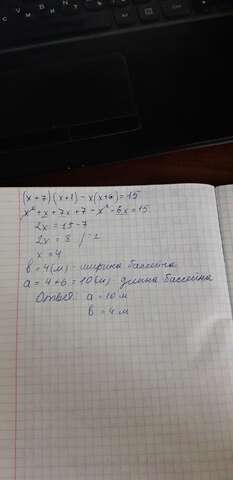 (x+7)(x+1) - x(x+6) = 15
x² + x + 7x + 7 - x² - 6x = 15
2x = 15 - 7
2x = 8 /:2
x = 4
b = 4(м) - ширина бассейна
a = 4 + 6 = 10(м) - длина бассейна
Ответ: a = 10 м
b = 4 м